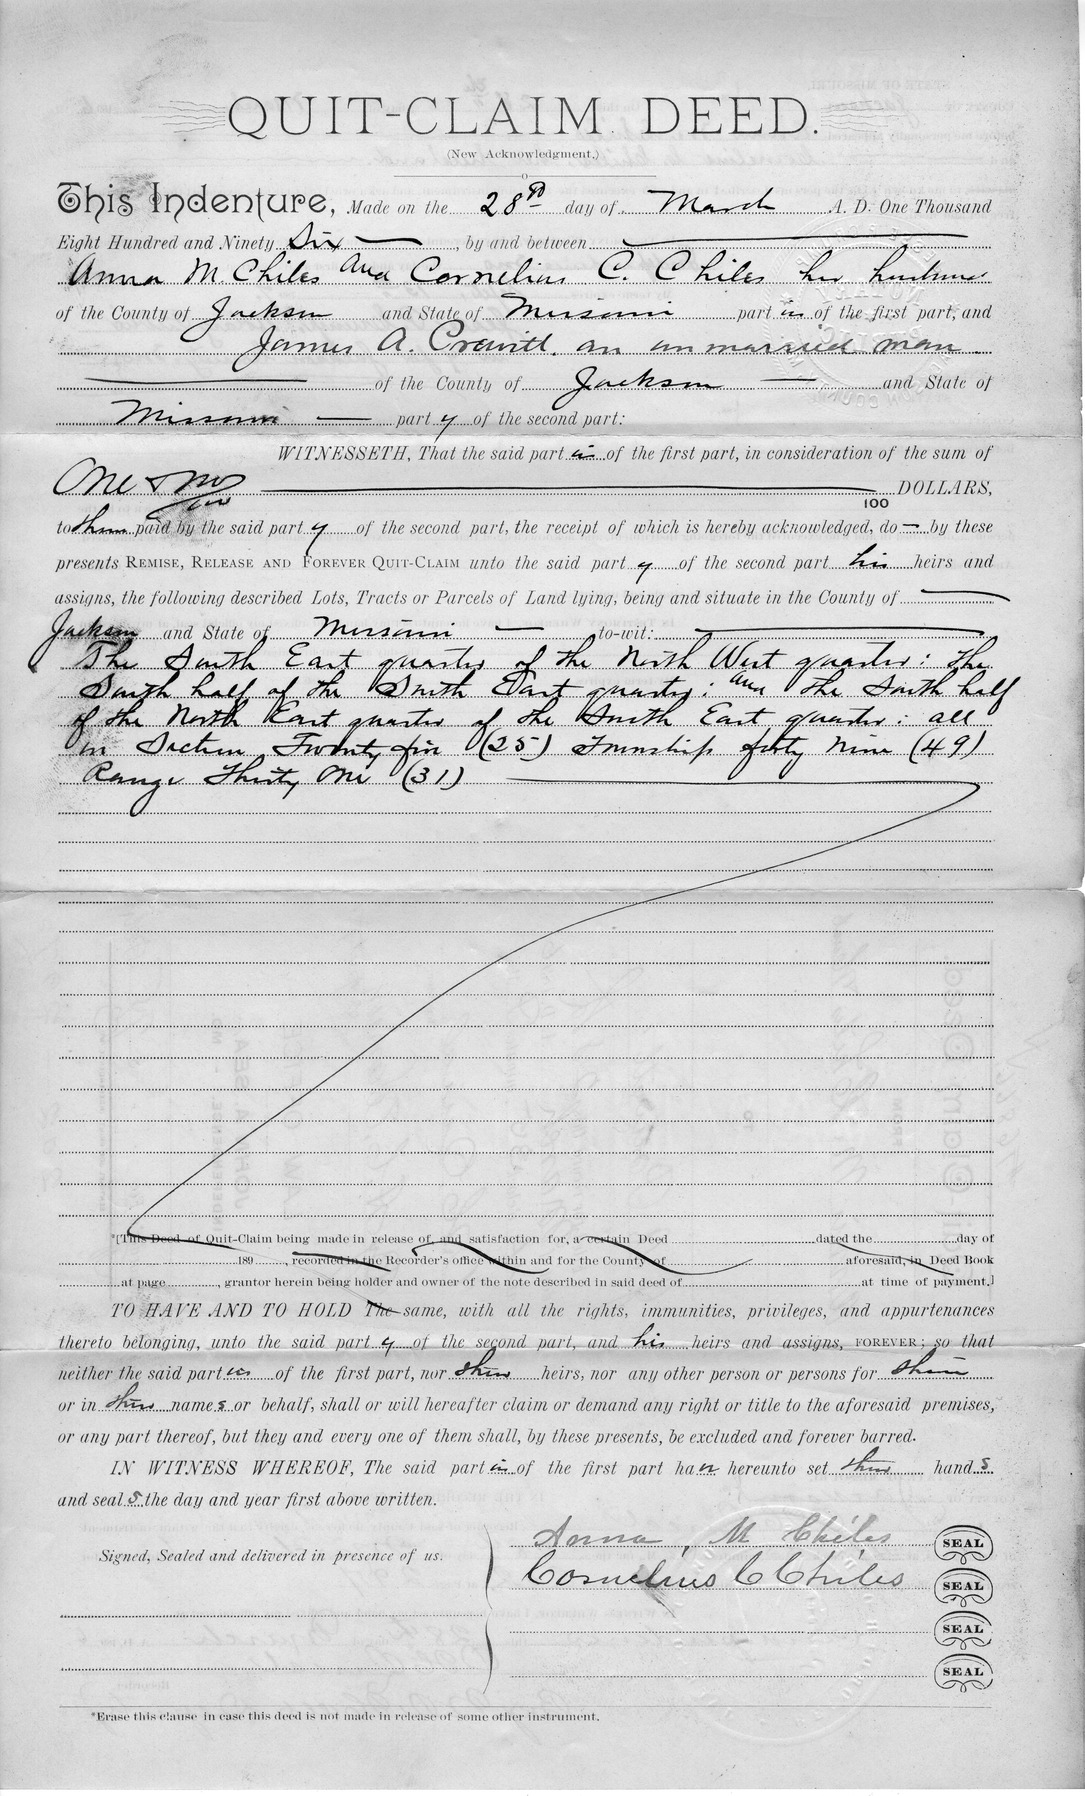 QUIT-CLAIM DEED.
(New Acknowledgment.)
This Indenture, Made on the 28th day of March A. D. One Thousand
Eight Hundred and Ninety Six, by and between
Anna M. Chiles and Cornelius C. Chiles her husband
of the County of Jackson and State of Missouri part ies of the first part, and
James A. Prewitt, an unmarried man
of the County of Jackson and State of
Missouri part y of the second part:
WITNESSETH, That the said part ies of the first part, in consideration of the sum of
One & no/100 100 DOLLARS,
to them paid by the said part y of the second part, the receipt of which is hereby acknowledged, do by these
presents REMISE, RELEASE AND FOREVER QUIT-CLAIM unto the said part y of the second part his heirs and
assigns, the following described Lots, Tracts or Parcels of Land lying, being and situate in the County of
Jackson and State of Missouri to-wit:
The South East quarter of the North West quarter: the
South half of the South East quarter: and the South half
of the North East quarter of the South East quarter: all
in Section Twenty five (25) Township forty nine (49)
Range Thirty One (31)
*[This Deed of Quit-Claim being made in release of, and satisfaction for, a certain Deed dated the day of
189 , recorded in the Recorder's office within and for the County of aforesaid, in Deed Book
at page , grantor herein being holder and owner of the note described in said deed of at time of payment.]
TO HAVE AND TO HOLD The same, with all the rights, immunities, privileges, and appurtenances
thereto belonging, unto the said part y of the second part, and his heirs and assigns, FOREVER; so that
neither the said part ies of the first part, nor their heirs, nor any other person or persons for them
or in their name s or behalf, shall or will hereafter claim or demand any right or title to the aforesaid premises,
or any part thereof, but they and every one of them shall, by these presents, be excluded and forever barred.
IN WITNESS WHEREOF, The said part ies of the first part ha ve hereunto set their hand s
and seal s the day and year first above written.
Signed, Sealed and delivered in presence of us.
Anna M Chiles SEAL
Cornelius C Chiles SEAL
SEAL
SEAL
*Erase this clause in case this deed is not made in release of some other instrument.